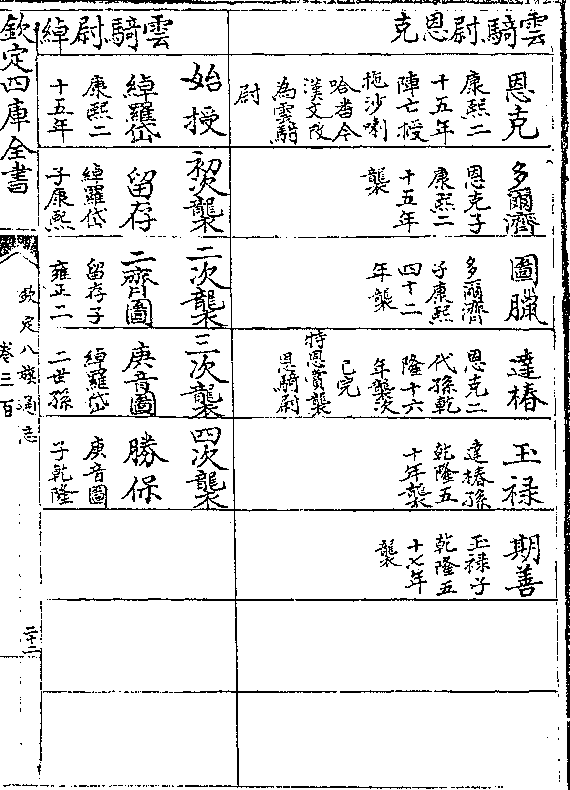 雲騎尉恩克
恩克
康熙二
十五年
陣亡授
拖沙喇
哈番今
漢文改
為雲騎
尉
多爾濟
恩克子
康熙二
十五年
襲
圖臘
多爾濟
子康熙
四十二
年襲
達椿
恩克二
代孫乾
隆十六
年襲次
已完
特恩賞襲
恩騎尉
玉禄
達椿孫
乾隆五
十年襲
期善
玉禄子
乾隆五
十七年
襲
雲騎尉綽
始授
綽羅岱
康熙二
十五年
初次襲
留存
綽羅岱
子康熙
二次襲
二齊圖
留存子
雍正二
三次襲
庚音圖
綽羅岱
二世孫
四次襲
勝保
庚音圖
子乾隆
欽定四庫全書
欽定八旗通志
卷三百
二十二